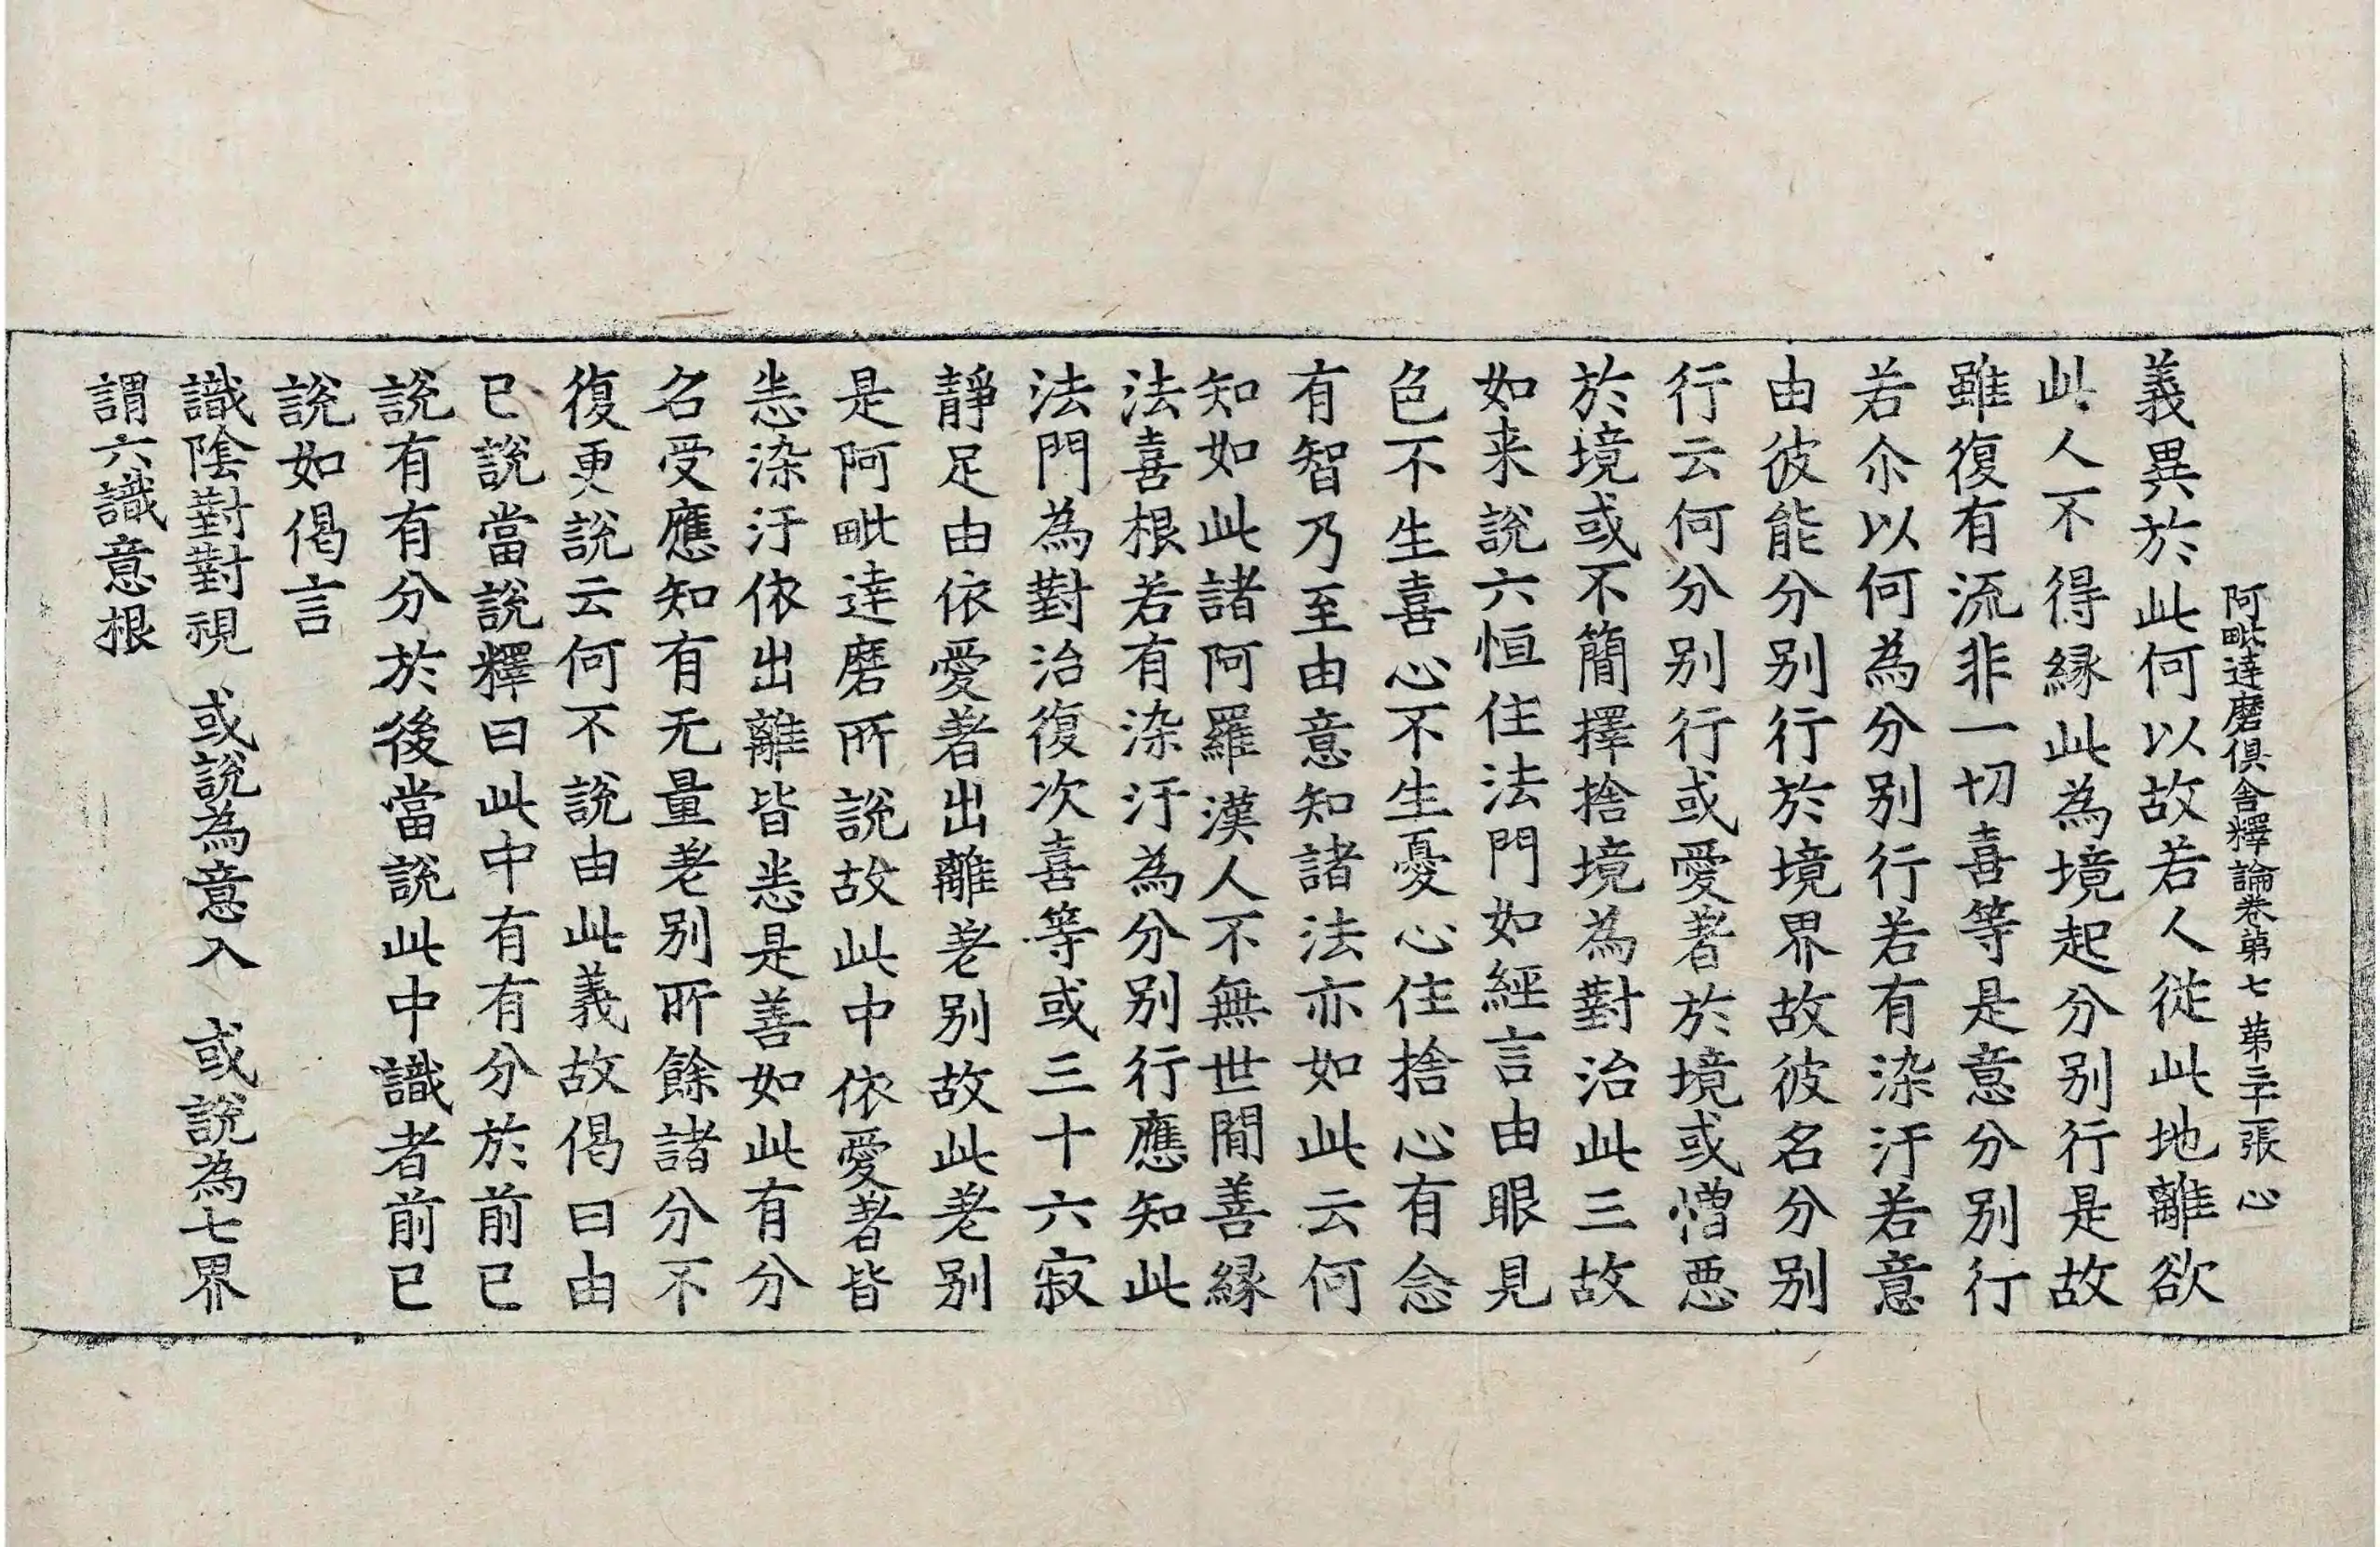 阿毗達磨俱舍釋論卷第七 第二十張 心
義異於此何以故若人從此地離欲
此人不得緣此為境起分別行是故
雖復有流非一切喜等是意分別行
若尒以何為分別行若有染汙若意
由彼能分別行於境界故彼名分別
行云何分別行或愛著於境或憎惡
於境或不簡擇捨境為對治此三故
如来說六恒住法門如經言由眼見
色不生喜心不生憂心住捨心有念
有智乃至由意知諸法亦如此云何
知如此諸阿羅漢人不無世間善緣
法喜根若有染汙為分別行應知此
法門為對治復次喜等或三十六寂
靜足由依愛著出離差別故此差別
是阿毗達磨所說故此中依愛著皆
悉染汙依出離皆悉是善如此有分
名受應知有无量差別所餘諸分不
復更說云何不說由此義故偈曰由
已說當說釋曰此中有有分於前已
說有有分於後當說此中識者前已
說如偈言
識陰對對視 或說為意入 或說為七界
謂六識意根